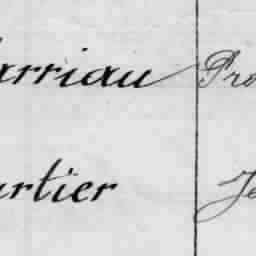 arriau Pro
artier Je